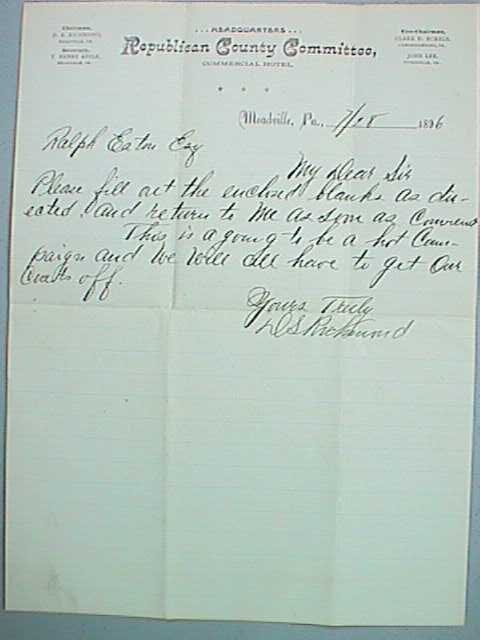 Chairman,
D. S. RICHMOND,
MEADVILLE, PA.
Secretary,
MEADVILLE, PA.
...HEADQUARTERS...
Republican County Committee,
COMMERCIAL HOTEL.
Vice-Chairmen,
JOHN LEE,
Meadville, Pa., 7/28 1896
Ralph Eaton Esq
My Dear Sir
Please fill out the enclosed blanks as dir-
ected. and return to me as soon as Convenient
This is a going to be a hot Cam-
paign and we will all have to get our
Coats off.
Yours Truly
D S Richmond